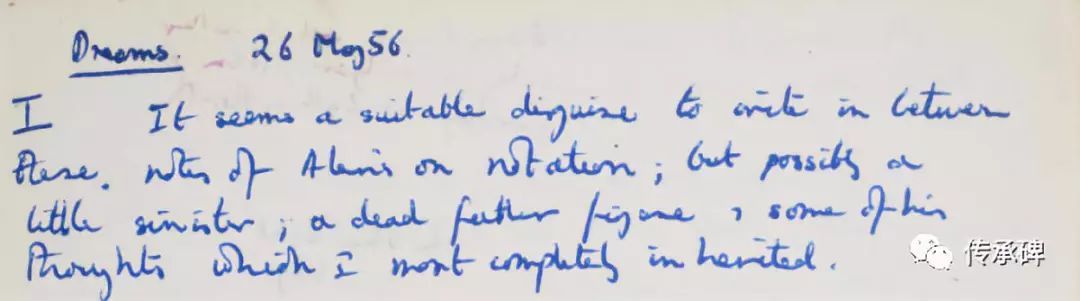 Dreams. 26 May 56.
I It seems a suitable disguise to write in between
these. notes of Alan's on notation; but possibly a
little sinister; a dead father figure & some of his
thoughts which I most completely inherited.
传承碑